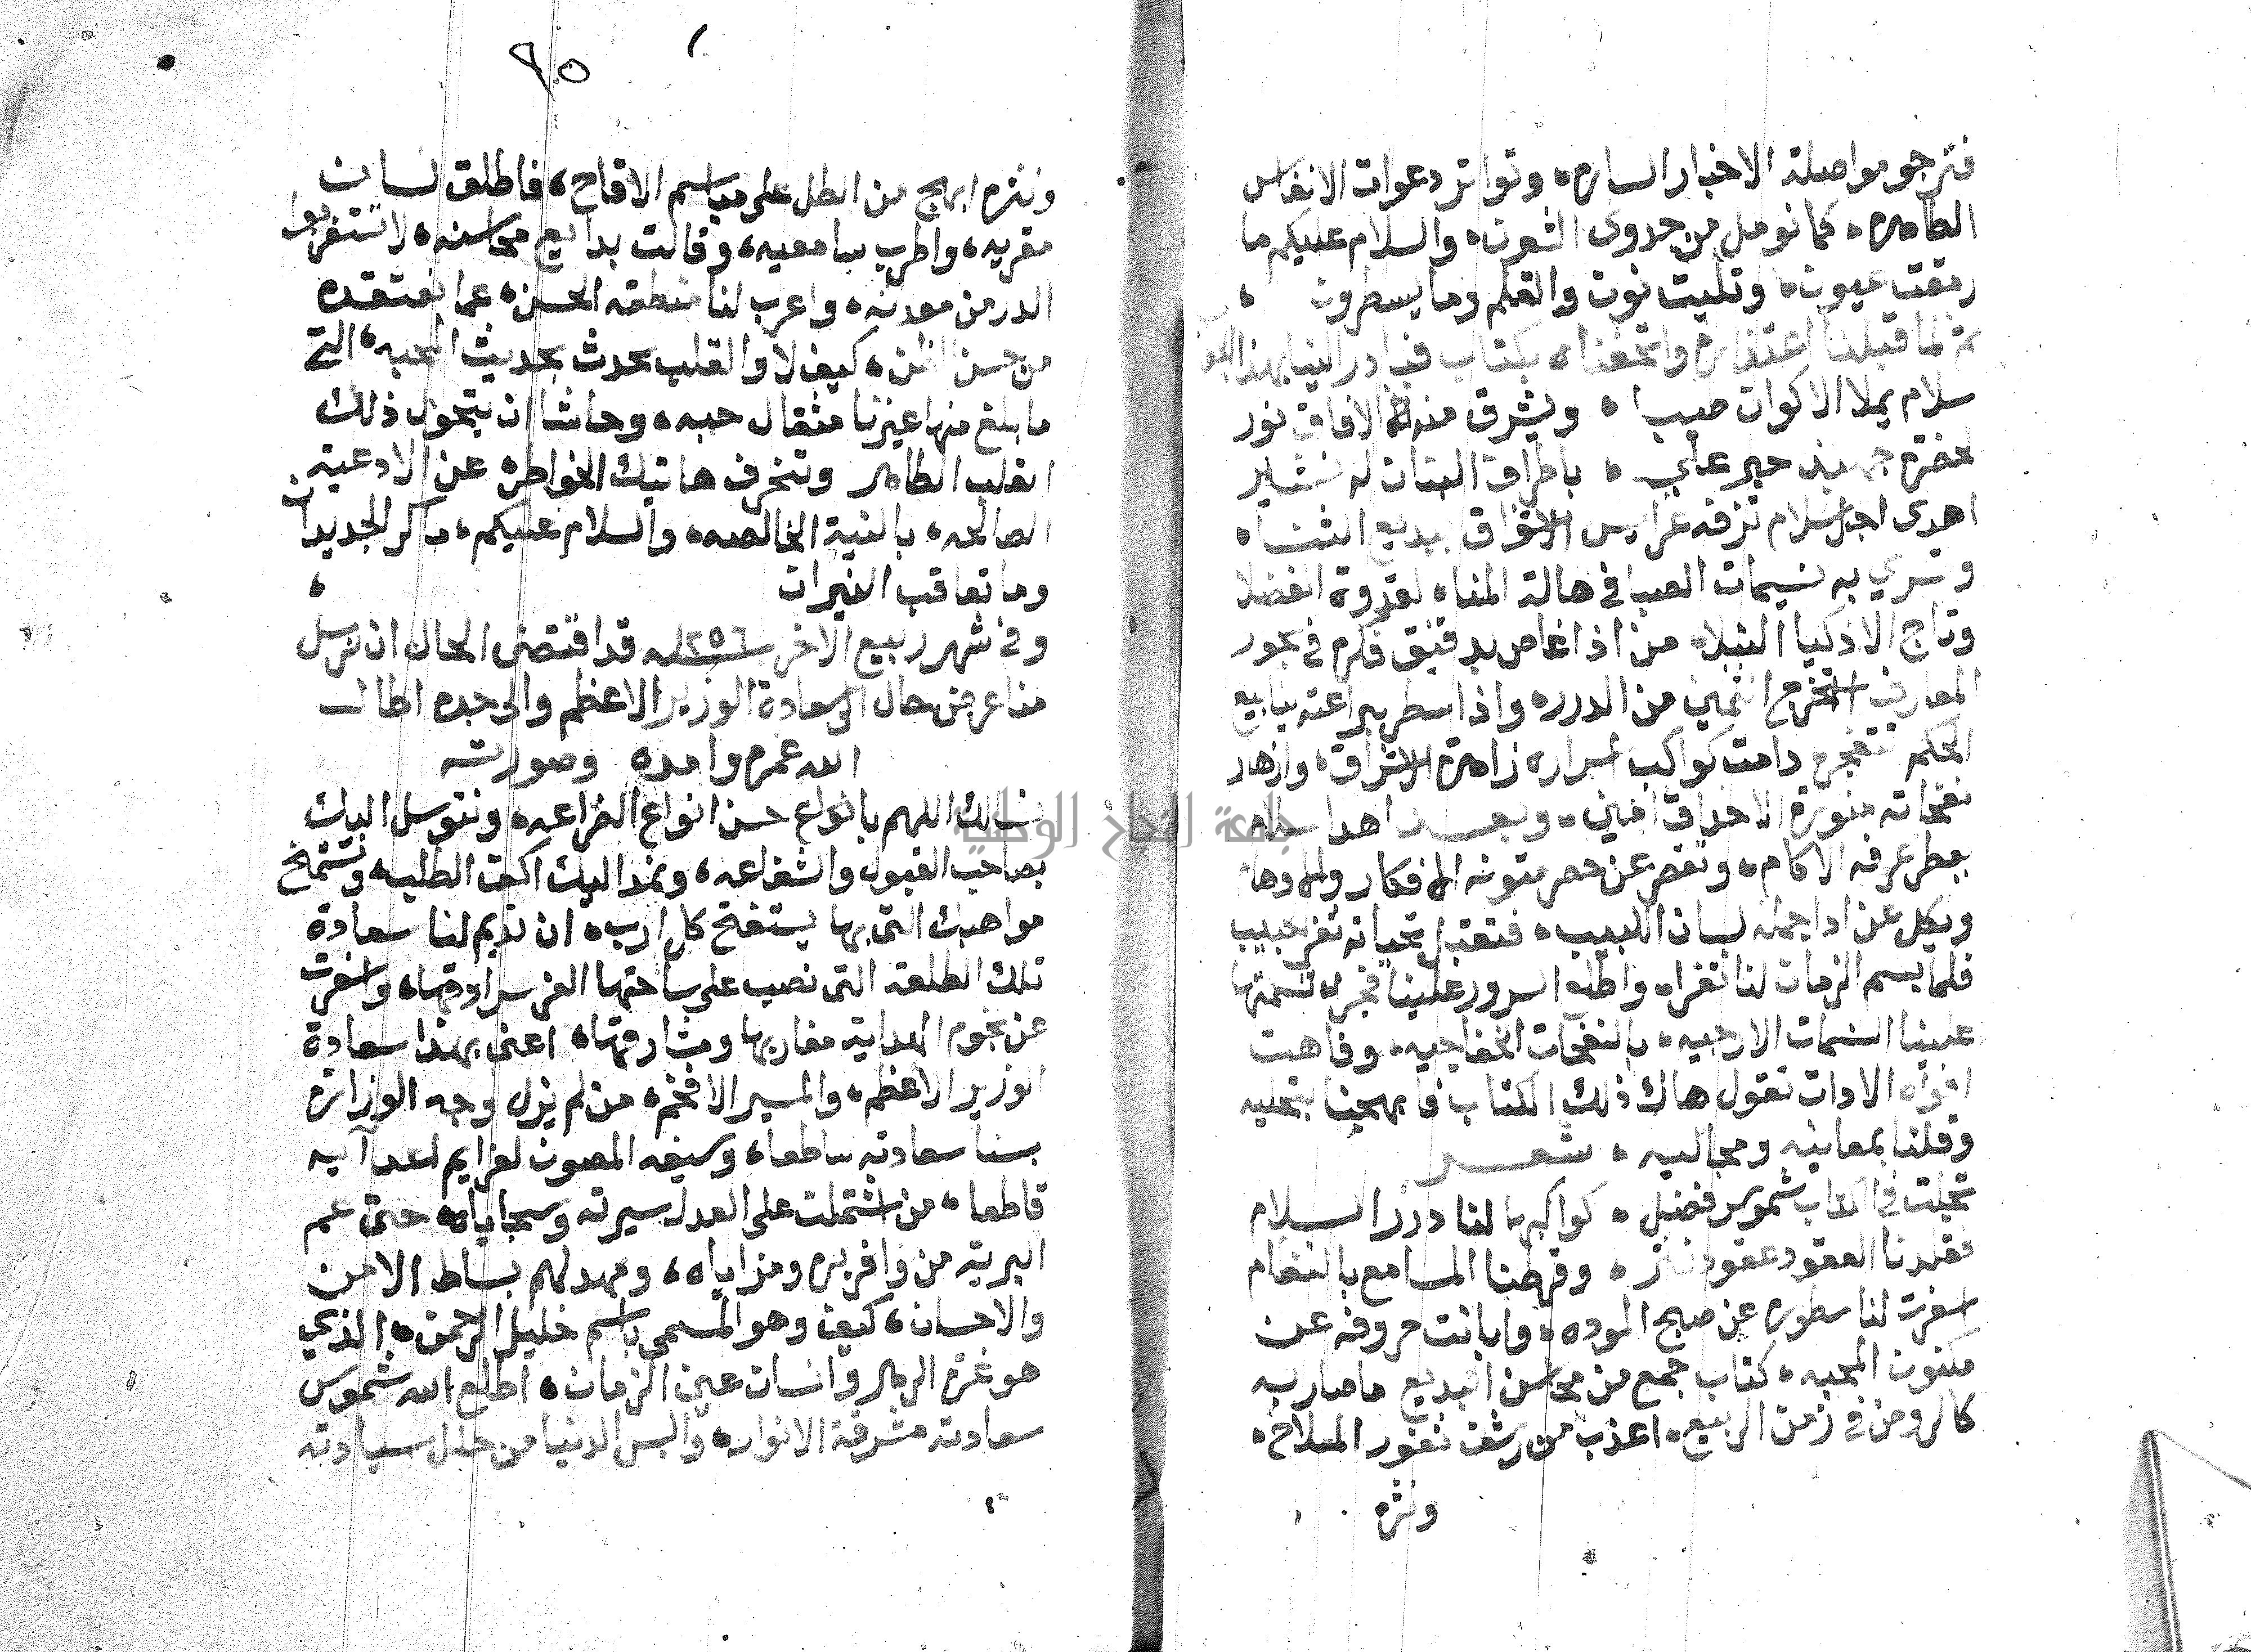 فنرجو مواصلة الاخبار الساره، وتواتر دعوات الانفاس
الطاهره، كما نومل من جدوى الشعرن، والسلام عليكم ما
رمقت عيون، وتليت نون والقلم وما يسطرون
ثم لما قبلنا اعتذاره واتحفناه بكتاب فبادر الينا بهذا الجواب
سلام يملا الاكوان طيبا، ويشرق منه في الافاق نور
لحضرة جهبذ حبر علي، باطراف البنان له نشير
اهدى اجل سلام تزفه عرايس الاشواق ببديع الثناء
وتسري به نسيمات الصبا في هالة المناه لقدوة الفضلا
وتاج الاذكيا النبلاء من اذا غاص بدقيق فكره في بحور
المعارف استخرج الثمين من الدرره واذا سطر ببراعته ينابيع
الحكم تتفجره دامت كواكب اسراره زاهرة الاشراق، وازهار
نفحاته منورة الاحداق امين، وبعد اهدا سلام
يعطر عرفه الاكام، وتقصر عن حصر متونه الافكار والاوهام
ويكل عن اداجمله لسان اللبيب، فتقبل تحياته ثغر الحبيب
فلما بسم الزمان لنا ثغراه واطلع السرور علينا فجراه نسمتها
علينا النسمات الارجيه، بالنفحات الخفاجيه، وفاهت
افواه الادات تقول هاك ذلك الكتاب فابهجنا بتجليه
وقلنا بمعانيه ومجاليه، شعر
تجلت في الكتاب شموس فضل، كواكبها لنا درر السلام
فقلدنا العقود عقود نثر، وقرطنا المسامع بالنظام
اسفرت لنا سطوره عن صبح الموده، وابانت حروفه عن
مكنون المحبه، كتاب جمع من محاسن البديع ما صار به
كالروض في زمن الربيع، اعذب من رشف ثغور الملاح،
ونثره
٩٥
ونثره ابهج من الطل على مباسم الاقاح، فاطلق لسان
مقريه، واطرب سامعيه، وقالت بدايع محاسنه، لا تستغربوا
الدر من معدنه، واعرب لنا منطقه الحسن، عما نعتقده
من حسن الظن، كيف لا والقلب يحدث بحديث المحبه، التي
ما بلغ منها غيرنا مثقال حبه، وحاشا ان يتحول ذلك
القلب الطاهر وتنحرف هاتيك الخواطر عن الادعية
الصالحه، بالنية الخالصه، والسلام عليكم، ما كر الجديدان
وما تعاقب النيران
وفي شهر ربيع الاخر سنة ١٢٥٦ قد اقتضى الحال ان نرسل
منا عرض حال الى سعادة الوزير الاعظم والى جده اطال
الله عمره وامده وصورته
نسالك اللهم بانواع حسن انواع الضراعه، ونتوسل اليك
بصاحب القبول والشفاعه، ونمد اليك اكف الطلب، ونستمنح
مواهبك التي بها يستفتح كل ارب، ان تديم لنا سعادة
تلك الطلعة التي نصب على ساحتها العز سرادقها، واسفرت
عن نجوم الهداية مغاربها ومشارقها، اعنى بهذا سعادة
الوزير الاعظم، والمسير الافخم، من لم يزل وجه الوزارة
بسنا سعادته ساطعا، وسيفه المصون لعزايم اعدآئه
قاطعا، من اشتملت على العدل سيرته وسجاياه، حتى عم
البرية من وافر بره ومزاياه، ومهد لهم بساط الامن
والاحسان، كيف وهو المسمى باسم خليل الرحمن، الذي
هو غرة الدهر وانسان عين الزمان، اطلع الله شموس
سعادته مشرقة الانواره والبس الدنيا من حلل سيادته
جامعة النجاح الوطنية